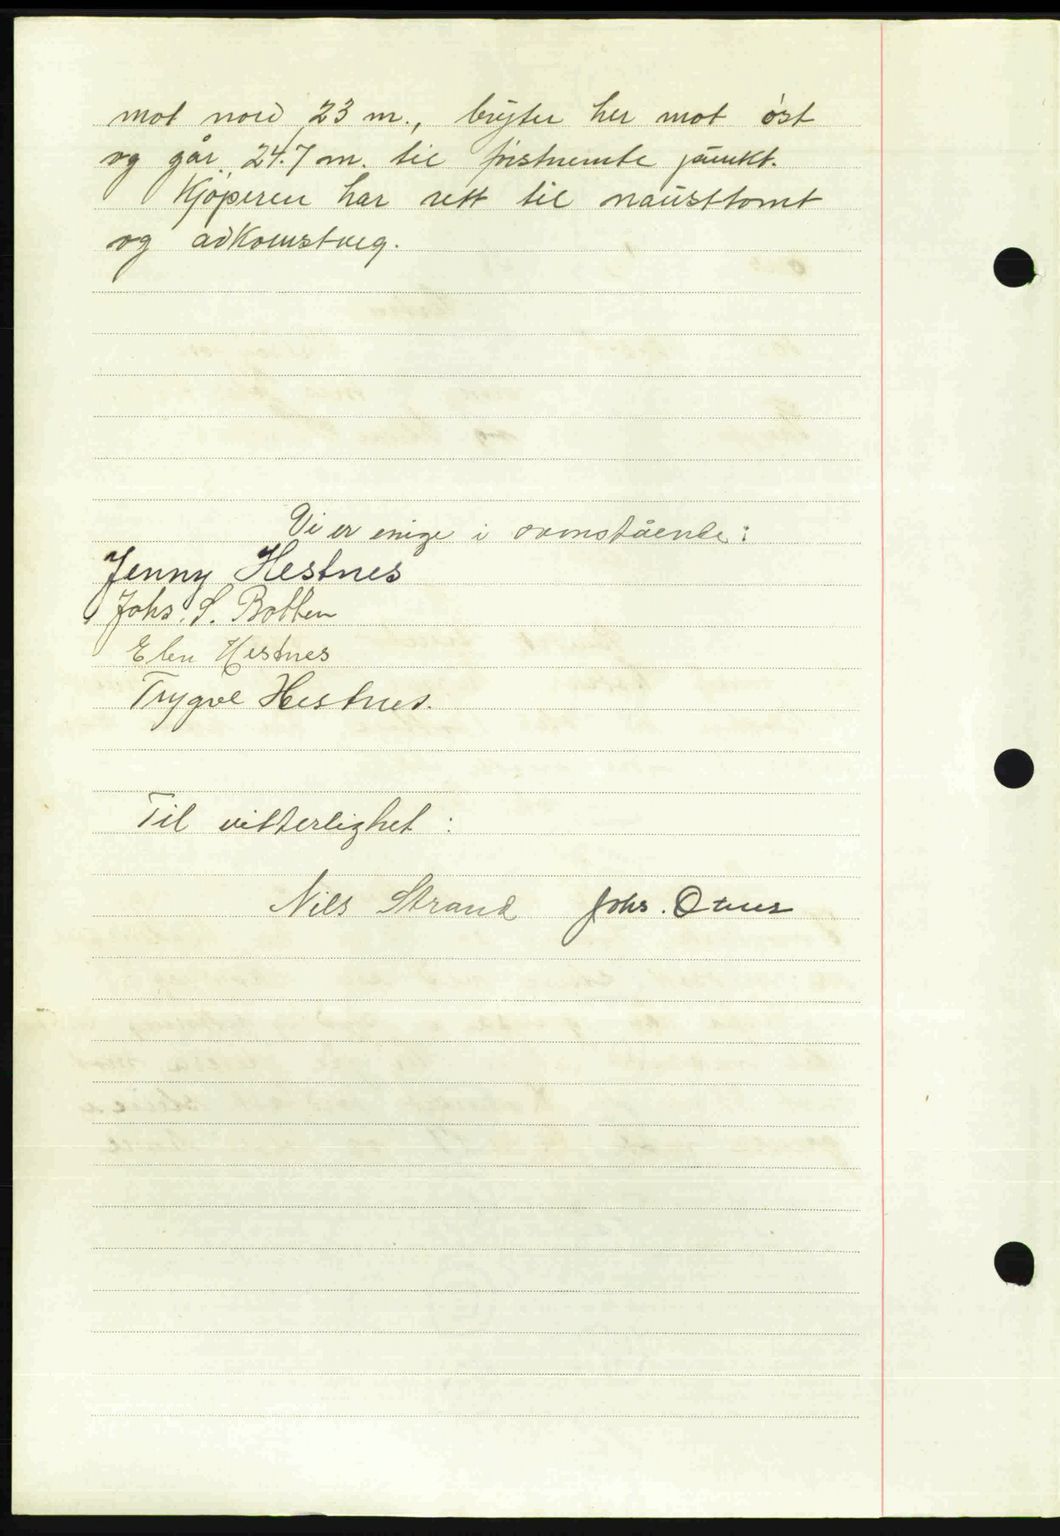 mot nord 23 m., bryter her mot öst
og går 24.7 m. til förstnemte punkt.
Kjöperen har rett til nausttomt
og adkomstveg.
Vi er enige i ovenstående:
Jenny Hestnes
Johs. S. Botten
Elen Hestnes
Trygve Hestnes.
Til vitterlighet :
Nils Strand Johs. Otnes